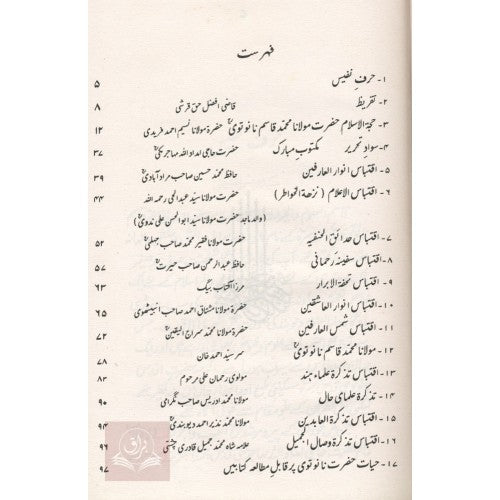 فہرست
۱۔ حرفِ نفیس ۵
۲۔ تقریظ قاضی افضل حق قرشی ۸
۳۔ حجۃ الاسلام حضرت مولانا محمّد قاسم نانوتویؒ حضرۃ مولانا نسیم احمد فریدی ۱۲
۴۔ سوادِ تحریر مکتوبِ مبارک حضرت حاجی امداد اللہ مہاجر مکیؒ ۳۷
۵۔ اقتباس انوار العارفین حافظ محمّد حسین صاحب مراد آبادیؒ ۳۹
۶۔ اقتباس الاعلام (نزھۃ الخواطر) حضرت مولانا سید عبد الحی رحمہ اللہ ۴۴
(والد ماجد حضرت مولانا سید ابو الحسن علی ندویؒ)
۷۔ اقتباس حدائق الحنفیہ حضرت مولانا فقیر محمّد صاحب جہلمیؒ ۵۲
۸۔ اقتباس سفینہ رحمانی حافظ عبد الرحمن صاحب حیرتؒ ۵۷
۹۔ اقتباس تحفۃ الابرار مرزا آفتاب بیگ ۶۳
۱۰۔ اقتباس انوار العاشقین حضرۃ مولانا مشتاق احمد صاحب انبیٹھوی ۶۵
۱۱۔ اقتباس شمس العارفین حضرۃ مولانا محمّد سراج الیقین ۷۲
۱۲۔ مولانا محمّد قاسم نانوتویؒ سر سید احمد خان ۷۸
۱۳۔ اقتباس تذکرۃ علماء ہند مولوی رحمان علی مرحوم ۸۴
۱۴۔ تذکرۃ علمای حال مولانا محمّد ادریس صاحب نگرامی ۹۰
۱۵۔ اقتباس تذکرۃ العابدین مولانا محمّد نذیر احمد دیوبندیؒ ۹۴
۱۶۔ اقتباس تذکرۃ وصال الجمیل علامہ شاہ محمّد جمیل قادری چشتی ۹۶
۱۷۔ حیات حضرت نانوتوی پر قابلِ مطالعہ کتابیں ۹۷